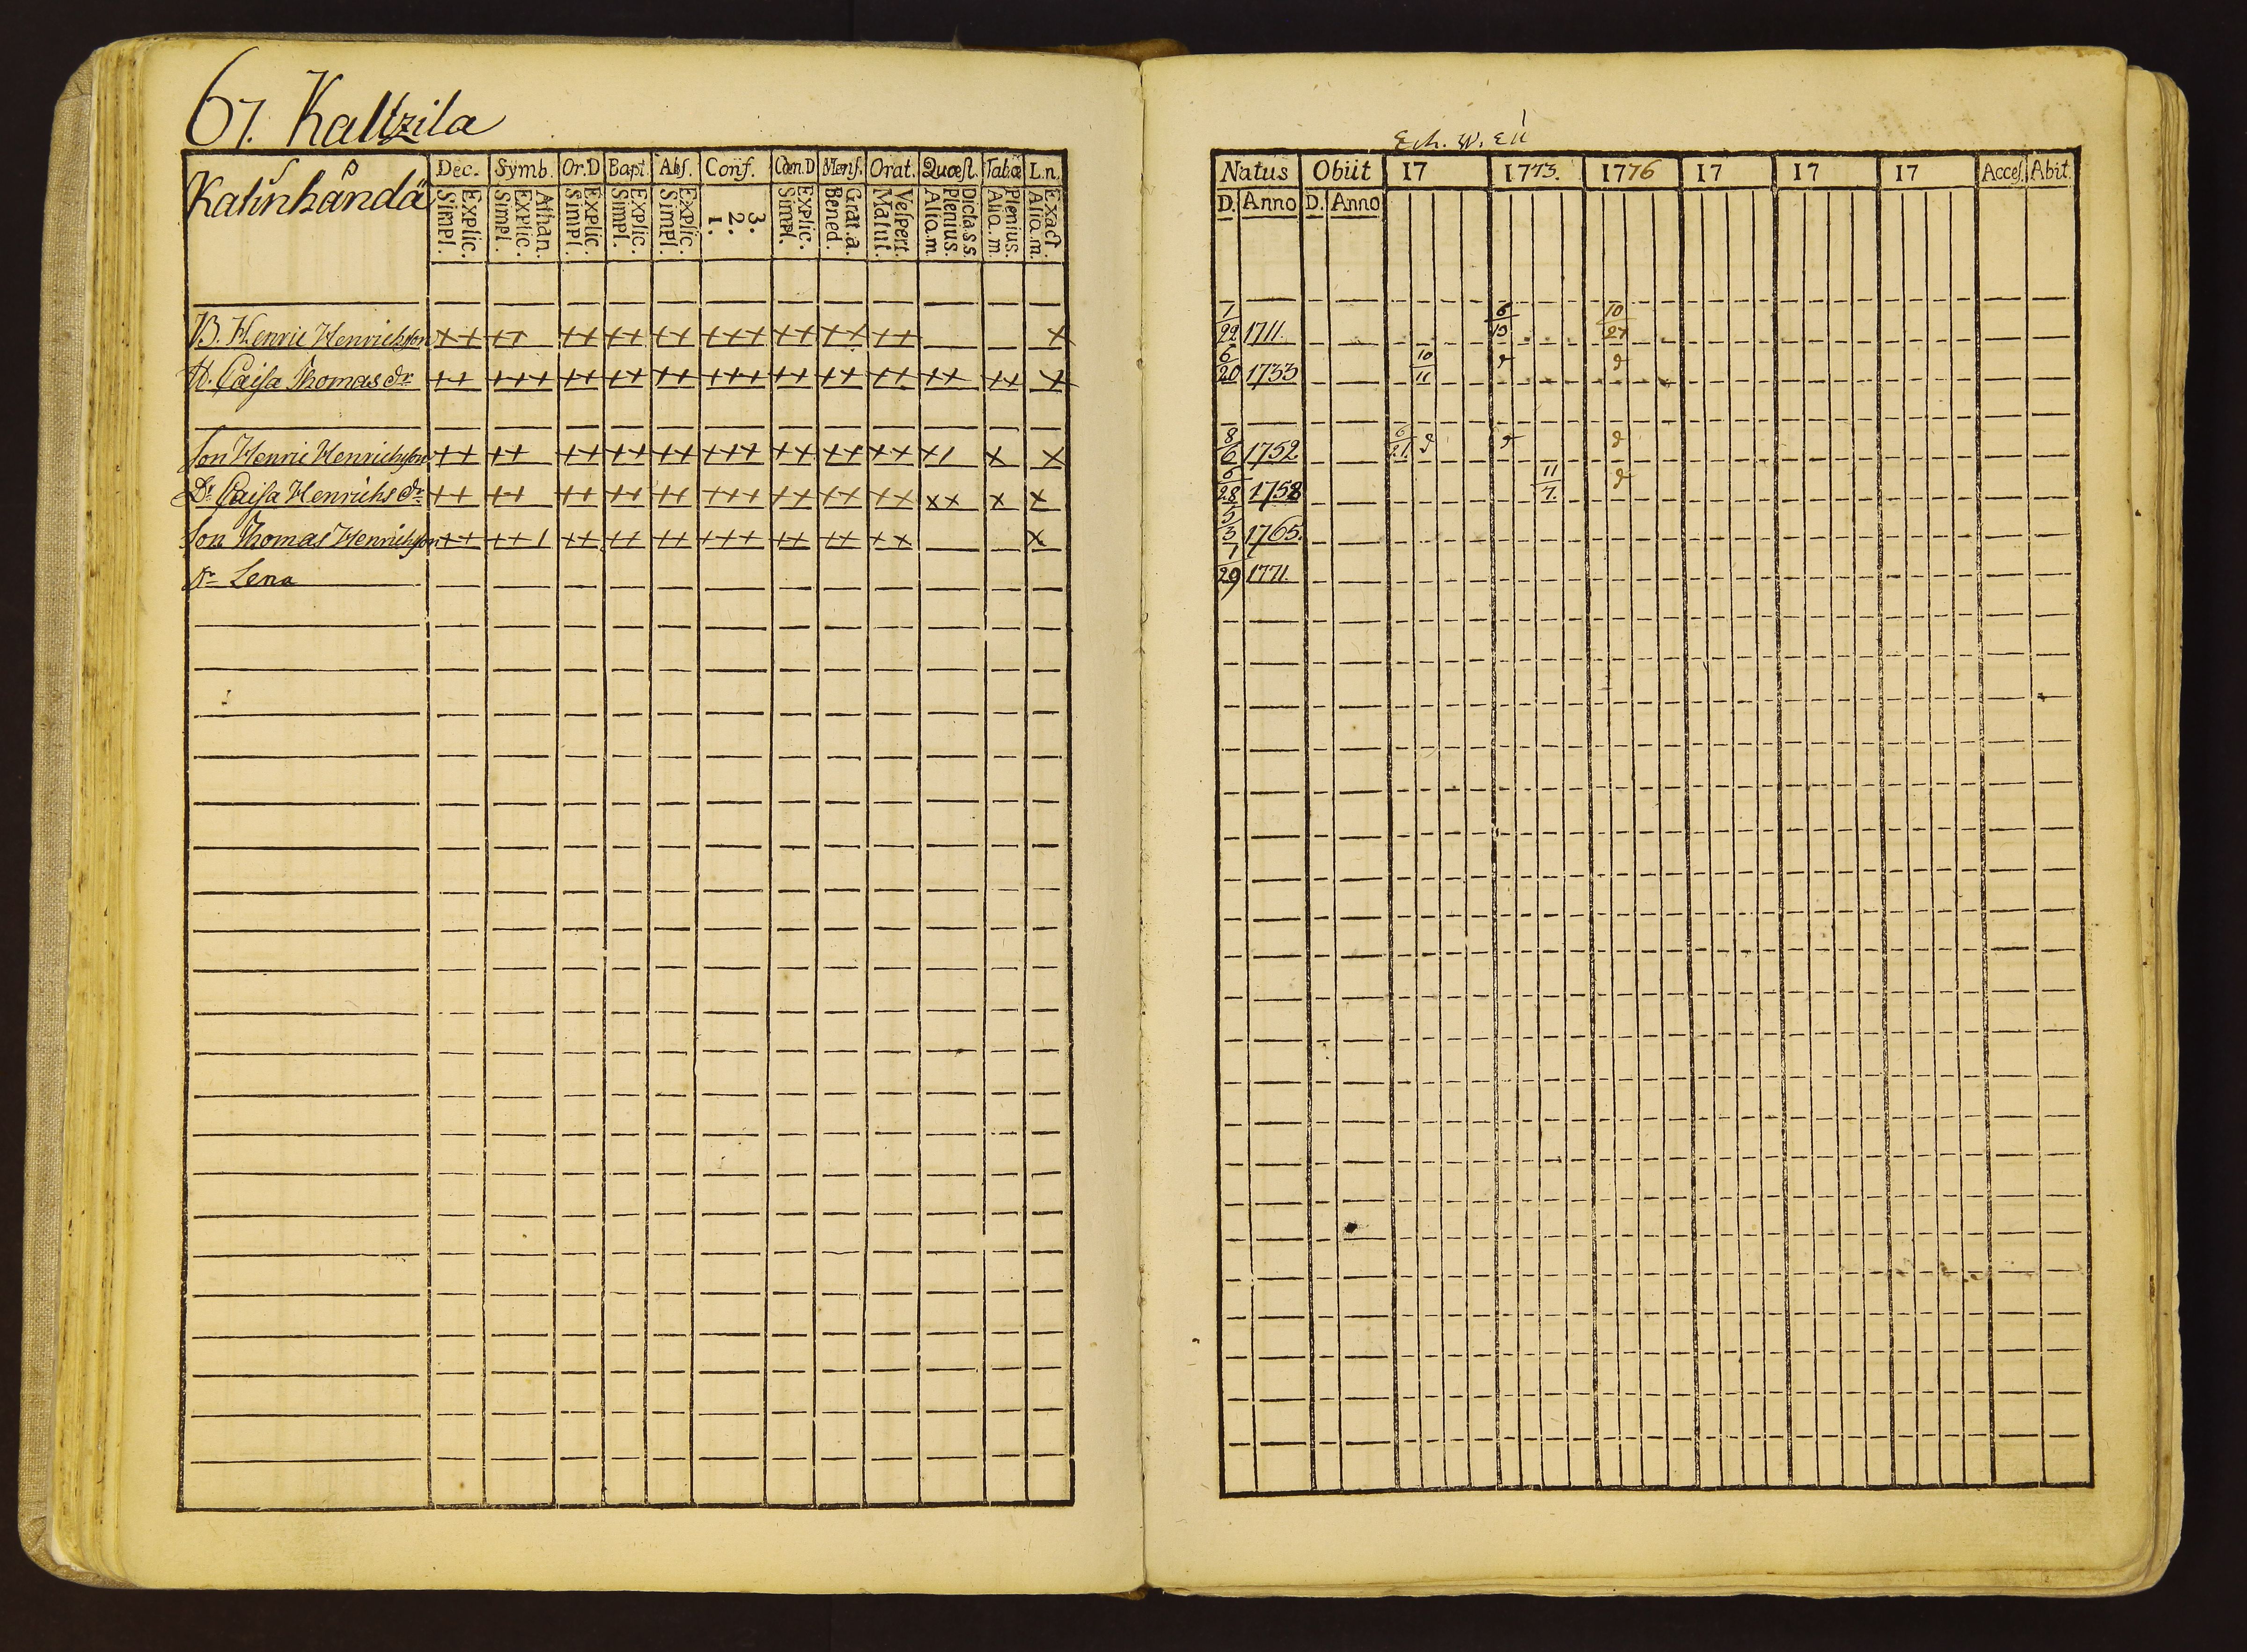 67. Kaltzila
Katinhåndä
Dec. Symb. Or.D Bapt. Abs. Conf. Cœn.D Mens. Orat. Quæst. Tabæ L.n.
Simpl. Explic. Simpl. Explic. Athan. Simpl. Explic. Simpl. Explic. Simpl. Explic. 1. 2. 3. Simpl. Explic. Bened. Grat.a. Matut. Vespert. Aliq.m. Plenius. Dictass. Aliq.m. Plenius. Aliq.m. Exact.
B. Henric Henrichson ++ ++ ++ ++ ++ +++ ++ ++ ++ x
H. Caisa Thomas dr ++ +++ ++ ++ ++ +++ ++ ++ ++ ++ ++ x
Son Henric Henrichson ++ ++ ++ ++ ++ +++ ++ ++ ++ x/ x x
Dr Caisa Henrichs dr ++ ++ ++ ++ ++ +++ ++ ++ ++ xx x x
Son Thomas Henrichson ++ ++/ ++ ++ ++ +++ ++ ++ ++ x
Dr Lena
Natus Obiit 17 1773. 1776 17 17 17 Acces. Abit.
D. Anno D. Anno
7/22 1711. 6/13 10/27
6/20 1733 10/11
8/6 1752 6/21
6/28 1758 11/7.
5/3 1765.
1/29 1771.